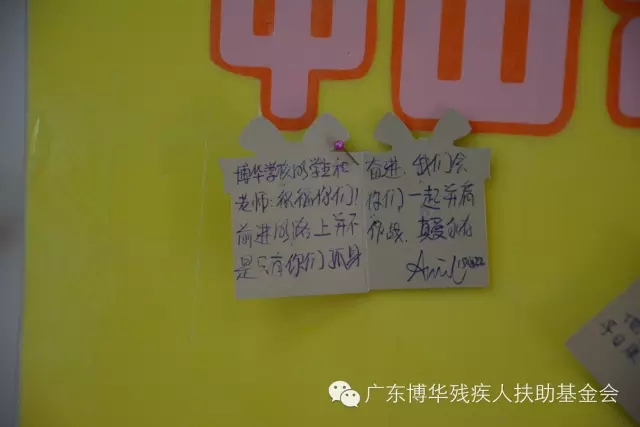 中山
博华学校的学生和
老师:祝福你们!
前进的路上并不
是只有你们孤身
奋进,我们会
你们一起并肩
作战,真爱永存
广东博华残疾人扶助基金会